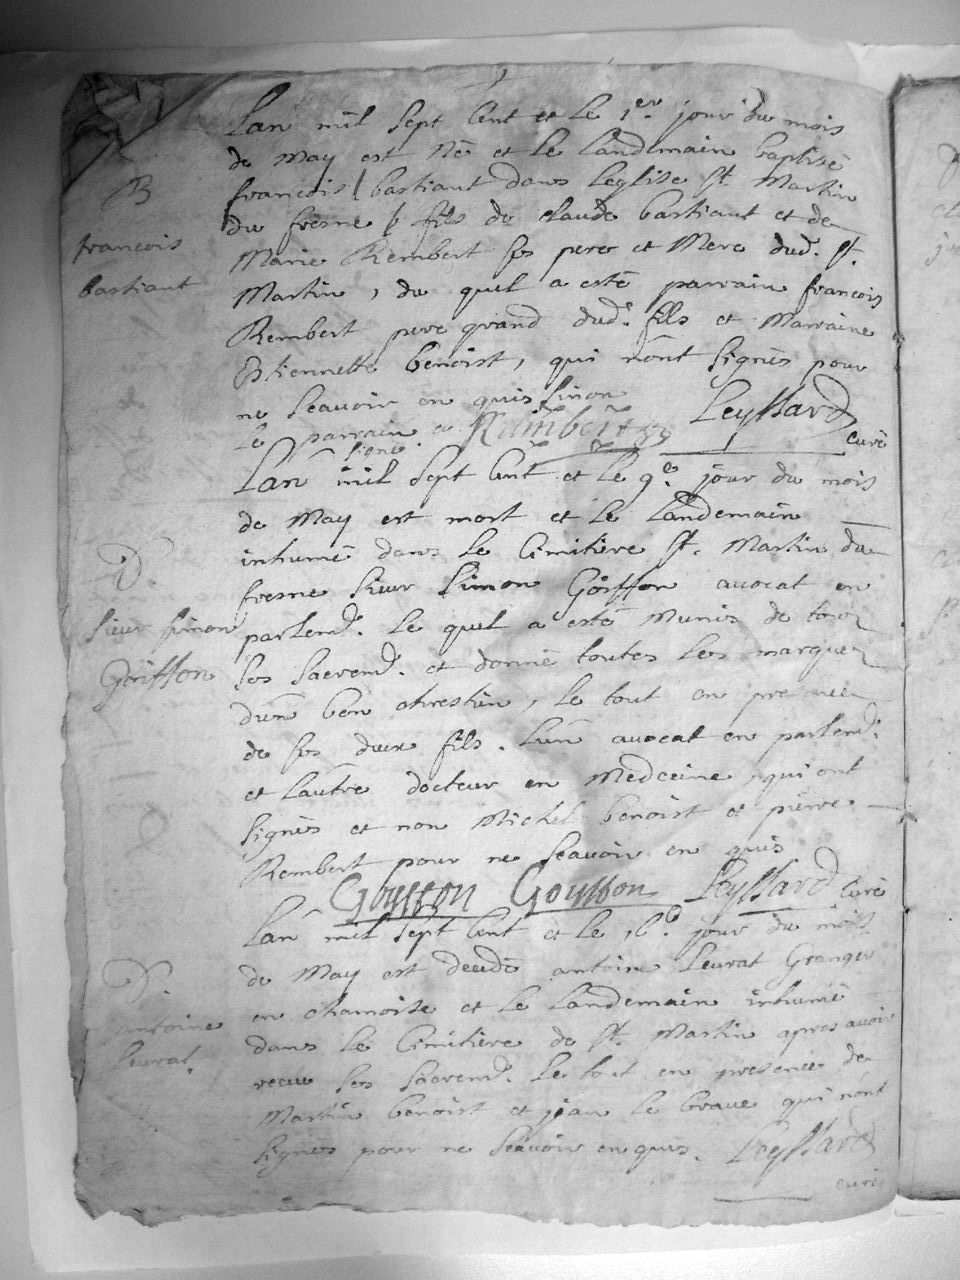 B
francois
bastiant
Lan mil sept Cent et Le 1er. jour du mois
de May est Né et Le Landemain baptisé
francois bastiant dans Leglise st. Martin
du fresne fils de claude bastiant et de
Marie Rembert ses pere et Mere dud. st.
Martin, du quel a esté parrain francois
Rembert pere grand dud. fils et Marraine
Estiennette benoist, qui nont signés pour
ne scavoir en quis sinon
Le parrain a signé Rambert Leyssard curé
Lan mil sept Cent et Le 9e. jour du mois
de May est mort et Le Landemain
inhumé dans Le Cimitiere st. Martin du
fresne sieur simon Goiffon avocat en
parlend. Le quel a esté Munis de tous
ses sacremd. et donné toutes Les marques
dun bon chrestien, Le tout en presence
de ses deux fils. Lun avocat en parlemd.
et Lautre docteur en Medecine, qui ont
signés et non Michel benoist et pierre
Rembert pour ne scavoir en quis
Goyffon Goyffon Leyssard Curé
D.
sieur simon
Goiffon
Lan mil sept Cent et Le 16e. jour du mois
de May est decedé antoine Leurat Granger
en chamoise et Le Landemain inhumé
dans Le Cimitiere de st. Martin apres avoir
receu ses sacremd. Le tout en presence de
Martin benoist et jean Le brave qui nont
signés pour ne scavoir enquis. Leyssard
curé
D.
antoine
Leurat.